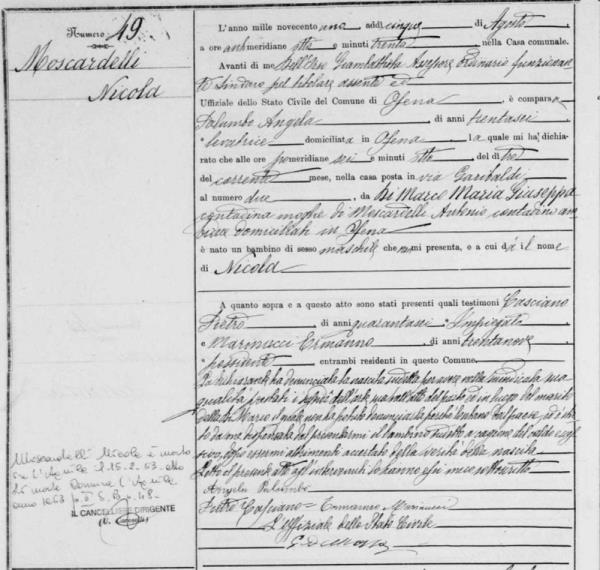 Numero 49
Moscardelli
Nicola
L'anno mille novecento uno, addì cinque di Agosto,
a ore antimeridiane otto e minuti trenta, nella Casa comunale.
Avanti di me Giambattista Assessore
Uffiziale dello Stato Civile del Comune di Ofena, è comparsa
Palumbo Angela, di anni trentasei
levatrice domiciliata in Ofena, la quale mi ha dichiarato
che alle ore pomeridiane sei e minuti otto, del dì tre
del corrente mese, nella casa posta in via Garibaldi
al numero due, da Di Marco Maria Giuseppa
contadina moglie di Moscardelli Antonio contadino
domiciliati in Ofena
è nato un bambino di sesso maschile che non mi presenta, e a cui dà il nome
di Nicola
A quanto sopra e a questo atto sono stati presenti quali testimoni Casciano
Pietro, di anni quarantasei, Impiegato
e Maronucci Ermanno, di anni trentanove,
possidente, entrambi residenti in questo Comune.
La dichiarante ha denunciato la nascita suddetta per avere nella indicata sua
qualità
Di Marco il quale non ha potuto denunciarla perchè lontano dal paese, ed è stata
da me dispensata dal presentarmi il bambino suddetto a cagione del
dopo essermi altrimenti accertato della verità della nascita
Letto il presente atto agli intervenuti lo hanno essi meco sottoscritto
Angela Palumbo
Pietro Casciano = Ermanno Maronucci
L'uffiziale dello Stato Civile
Moscardelli Nicola è morto
L'Aquila il 15.2.53. atto
di morte Comune L'Aquila
anno 1953 p. II S. B n. 48
IL CANCELLIERE DIRIGENTE